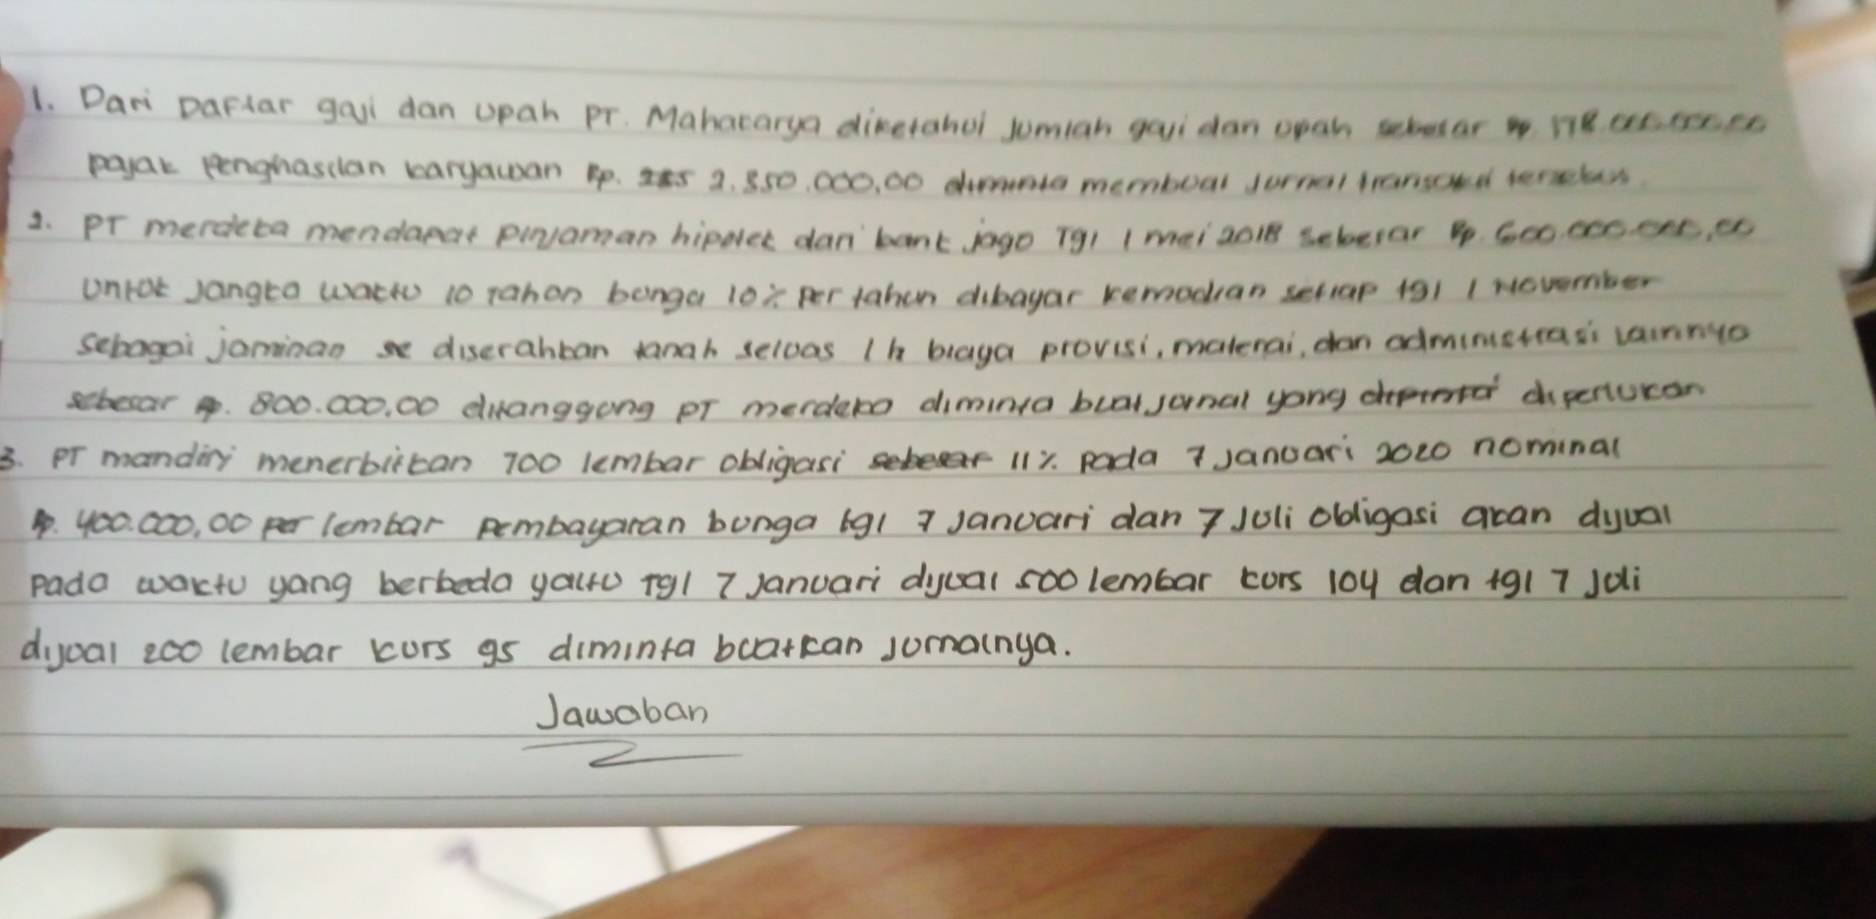 1. Dari Daftar gaji dan upah PT. Mahakarya diketahui Jumlah gaji dan upah sebesar Rp 178.000.000,00
pajak penghasilan karyawan Rp. 2.850.000,00 diminta membuat Jurnal transaksi tersebut.
2. PT merdeka mendapat pinjaman hipotek dari bank jago Tgl 1 mei 2018 sebesar Rp. 600.000.000,00
Untuk Jangka waktu 10 Tahun bunga 10% Per tahun dibayar kemudian setiap tgl 1 November
Sebagai jaminan diserahkan tanah seluas 1 h biaya provisi, materai, dan administrasi lainnya
sebesar Rp. 800.000,00 ditanggung PT merdeka diminta buat jurnal yang diperlukan
3. PT mandiri menerbitkan 700 lembar obligasi 11% pada 7 Januari 2020 nominal
Rp. 400.000,00 per lembar Pembayaran bunga tgl 7 Januari dan 7 Juli obligasi akan dijual
Pada waktu yang berbeda yaitu Tgl 7 Januari dijual 500 lembar kurs 104 dan tgl 7 Juli
dijual 200 lembar kurs 95 diminta buatkan Jurnalnya.
Jawaban